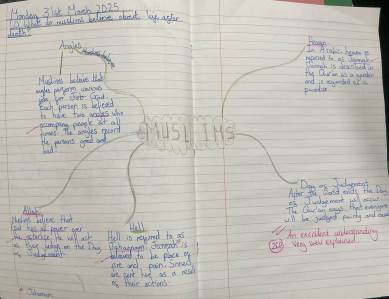 Monday 31st March 2025
LO What do muslims believe about life after
death?
Angles
Muslims believe that
angles perform various
jobs for God.
Each person is believed
to have two angles who
people at all
times. The angles record
the persons good and
bad.
Heaven
In Arabic heaven is
referred to as Jannah.
Jannah is described in
the Qur'an as a garden
and is regarded as a
paradise
MUSLIMS
Allah
Muslims believe that
God has all power over
the He will act
as the judge on the Day
of Judgement
Hell
Hell is referred to as
Jahannam. Jahannam is
believed to be place of
fire and pain. Sinners
are sent here as a result
of their actions.
Day of Judgement
After the world ends the Day
of Judgement will occur
The Qur'an says that everyone
will be judged fairly and
An excellent understanding
Very well explained